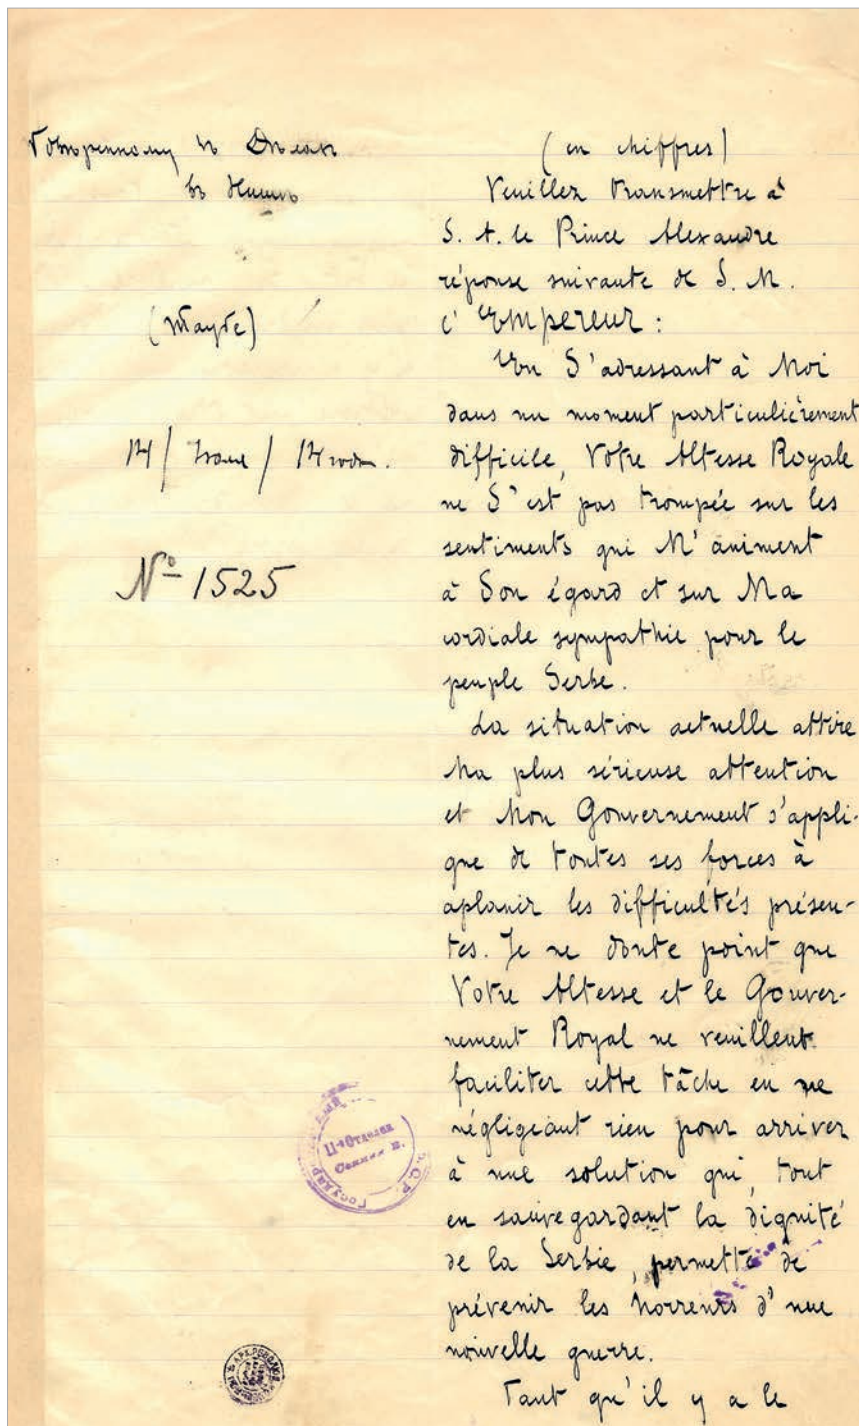 Повѣренному въ Дѣлахъ
въ Нишѣ
(Шифръ)
14 / Іюля / 14 года.
№ 1525
(en chiffres)
Veuillez transmettre à
S. A. le Prince Alexandre
réponse suivante de S. M.
l'Empereur :
En S'adressant à Moi
dans un moment particulièrement
difficile, Votre Altesse Royale
ne S'est pas trompée sur les
sentiments qui M'animent
à Son égard et sur Ma
cordiale sympathie pour le
peuple Serbe.
La situation actuelle attire
Ma plus sérieuse attention
et Mon Gouvernement s'appli-
que de toutes ses forces à
aplanir les difficultés présen-
tes. Je ne doute point que
Votre Altesse et le Gouver-
nement Royal ne veuillent
faciliter cette tâche en ne
négligeant rien pour arriver
à une solution qui, tout
en sauvegardant la dignité
de la Serbie, permette de
prévenir les horreurs d'une
nouvelle guerre.
Tant qu'il y a le